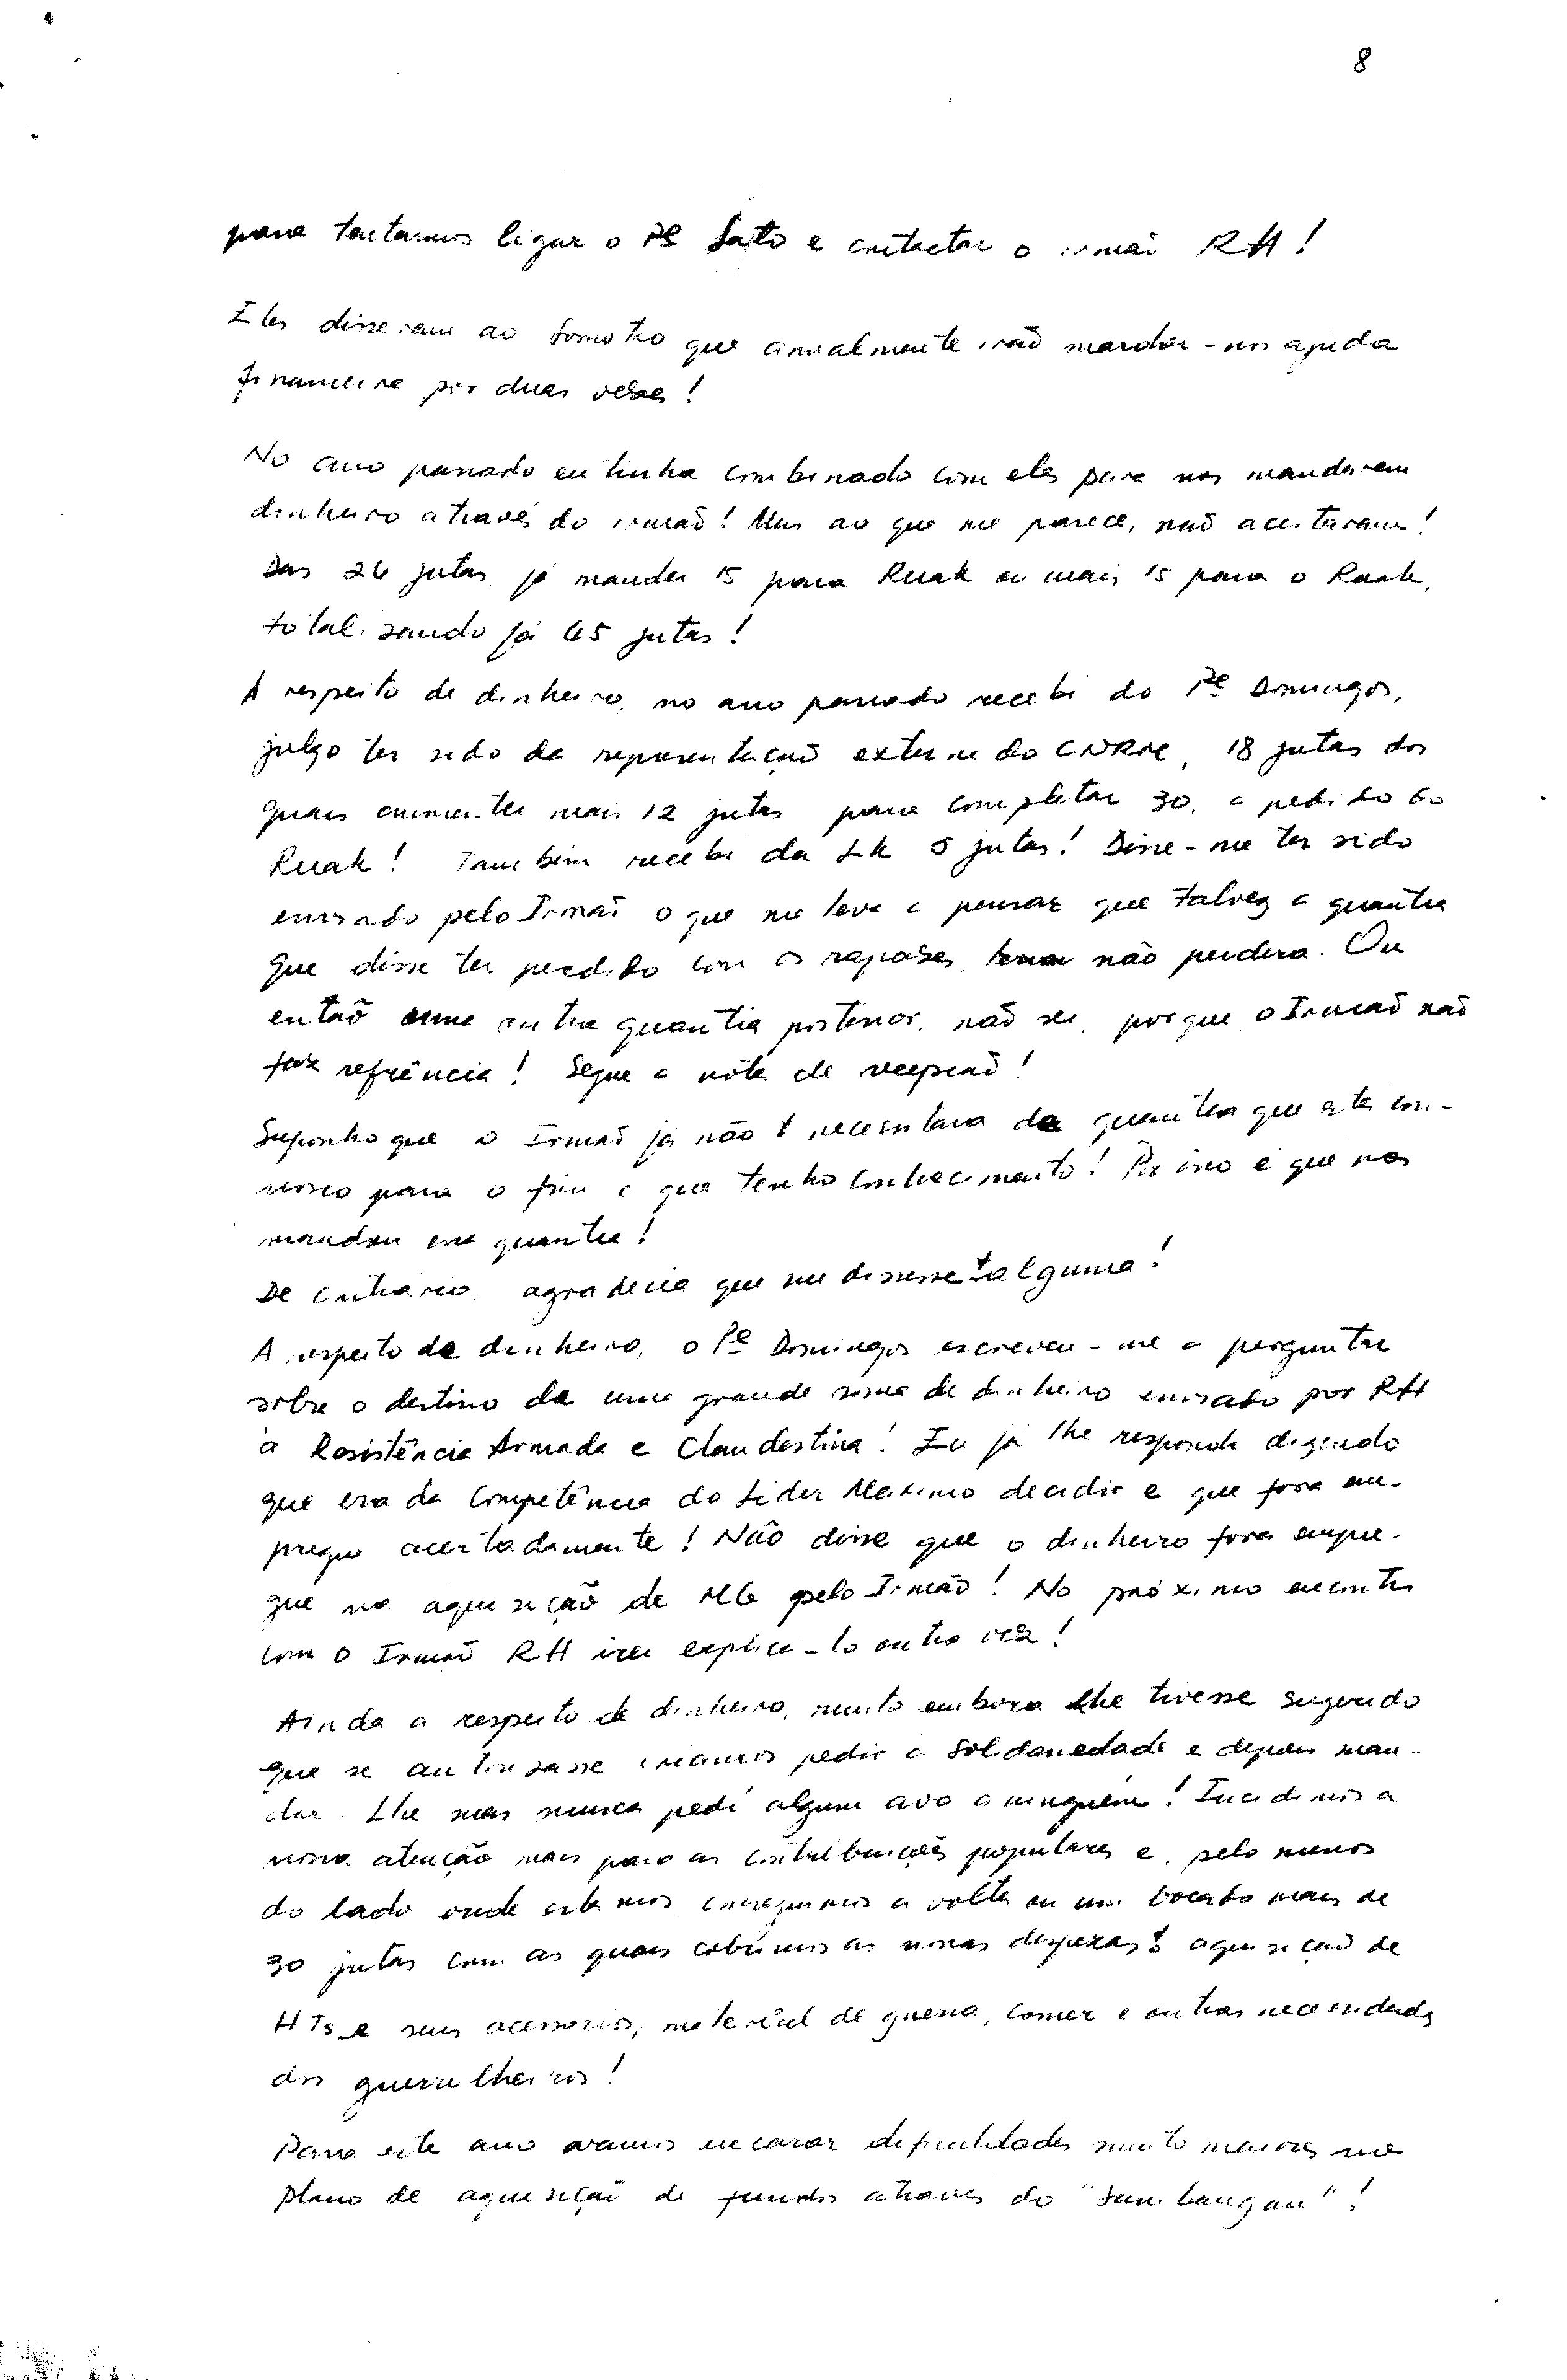 8
para tentarmos ligar o Pe Sato e contactar o irmão RH!
Eles disseram ao Somotxo que anualmente irão mandar-nos ajuda
financeira por duas vezes!
No ano passado eu tinha combinado com eles para nos mandarem
dinheiro através do irmão! Mas ao que me parece, não aceitaram!
Das 26 jutas já mandei 15 para Ruak e mais 15 para o Ruak,
totalisando já 45 jutas!
A respeito de dinheiro, no ano passado recebi do Pe Domingos,
julgo ter sido da representação externa do CNRM, 18 jutas dos
quais aumentei mais 12 jutas para completar 30, a pedido do
Ruak! Também recebi da LK 5 jutas! Disse-me ter sido
enviado pelo Irmão o que me leva a pensar que talvez a quantia
que disse ter perdido com os rapazes não perdera. Ou
então uma outra quantia posterior, não sei, porque o Irmão não
faz refrência! Segue a nota de recepção!
Suponho que o Irmão já não necessitava da quantia que está con-
nosco para o fim a que tenho conhecimento! Por isso é que nos
mandou essa quantia!
De contrário, agradecia que me dissesse alguma!
A respeito de dinheiro, o Pe Domingos escreveu-me a perguntar
sobre o destino de uma grande soma de dinheiro enviado por RH
à Resistência Armada e Clandestina! Eu já lhe respondi dizendo
que era da Competência do Lider Máximo decidir e que fora em-
pregue acertadamente! Não disse que o dinheiro fora empre-
gue na aquisição de MG pelo Irmão! No próximo encontro
com o Irmão RH irei explicá-lo outra vez!
Ainda a respeito de dinheiro, muito embora lhe tivesse sugerido
que se autorizasse iríamos pedir a Solidariedade e depois man-
dar Lhe mas nunca pedi algum avo a ninguém! Incidimos a
nossa atenção mais para as contribuições populares e, pelo menos
do lado onde estamos conseguimos a volta ou um bocado mais de
30 jutas com as quais cobrimos as nossas despezas: aquisição de
HTs e seus acessórios, material de guerra, comer e outras necessidades
dos guerrilheiros!
Para este ano vamos encarar dificuldades muito maiores no
plano de aquisição de fundos através do "Sumbangan"!